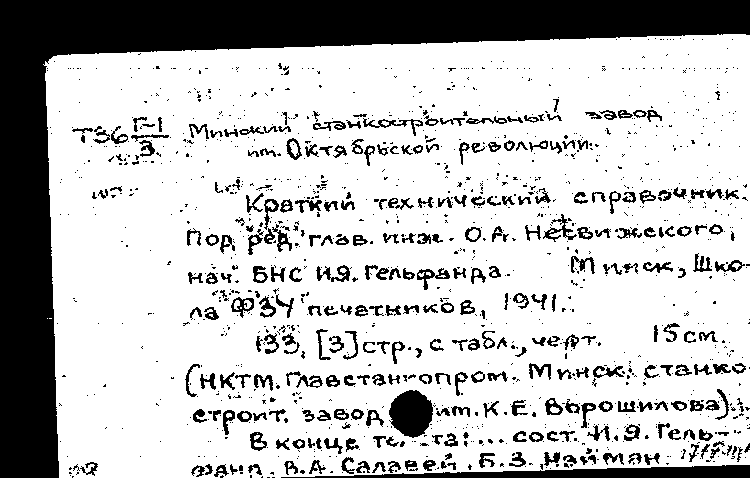 Т36 Г-1/3 Минский станкостроительный завод
им. Октябрьской революции.
Краткий технический справочник.
Под ред. глав. инж. О.А. Несвижского,
нач. БНС И.Я. Гельфанда. Минск, Шко-
ла ФЗУ печатников, 1941.
133, [3] стр., с табл., черт. 15 см.
(НКТМ. Главстанкопром. Минск. станко-
строит. завод им. К.Е. Ворошилова).
В конце : ... сост. И.Я. Гель-
фанд, В.А. Салавей, Б.З. Найман